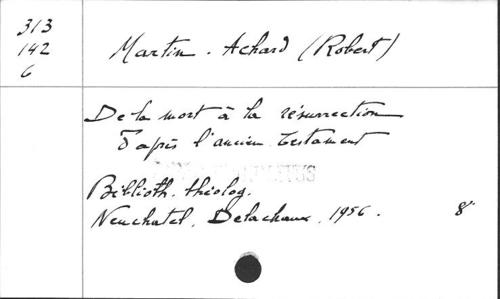 313
142
6
Martin-Achard (Robert)
De la mort à la résurrection
d'après l'ancien testament
Biblioth. théolog.
Neuchatel, Delachaux, 1956. 8°